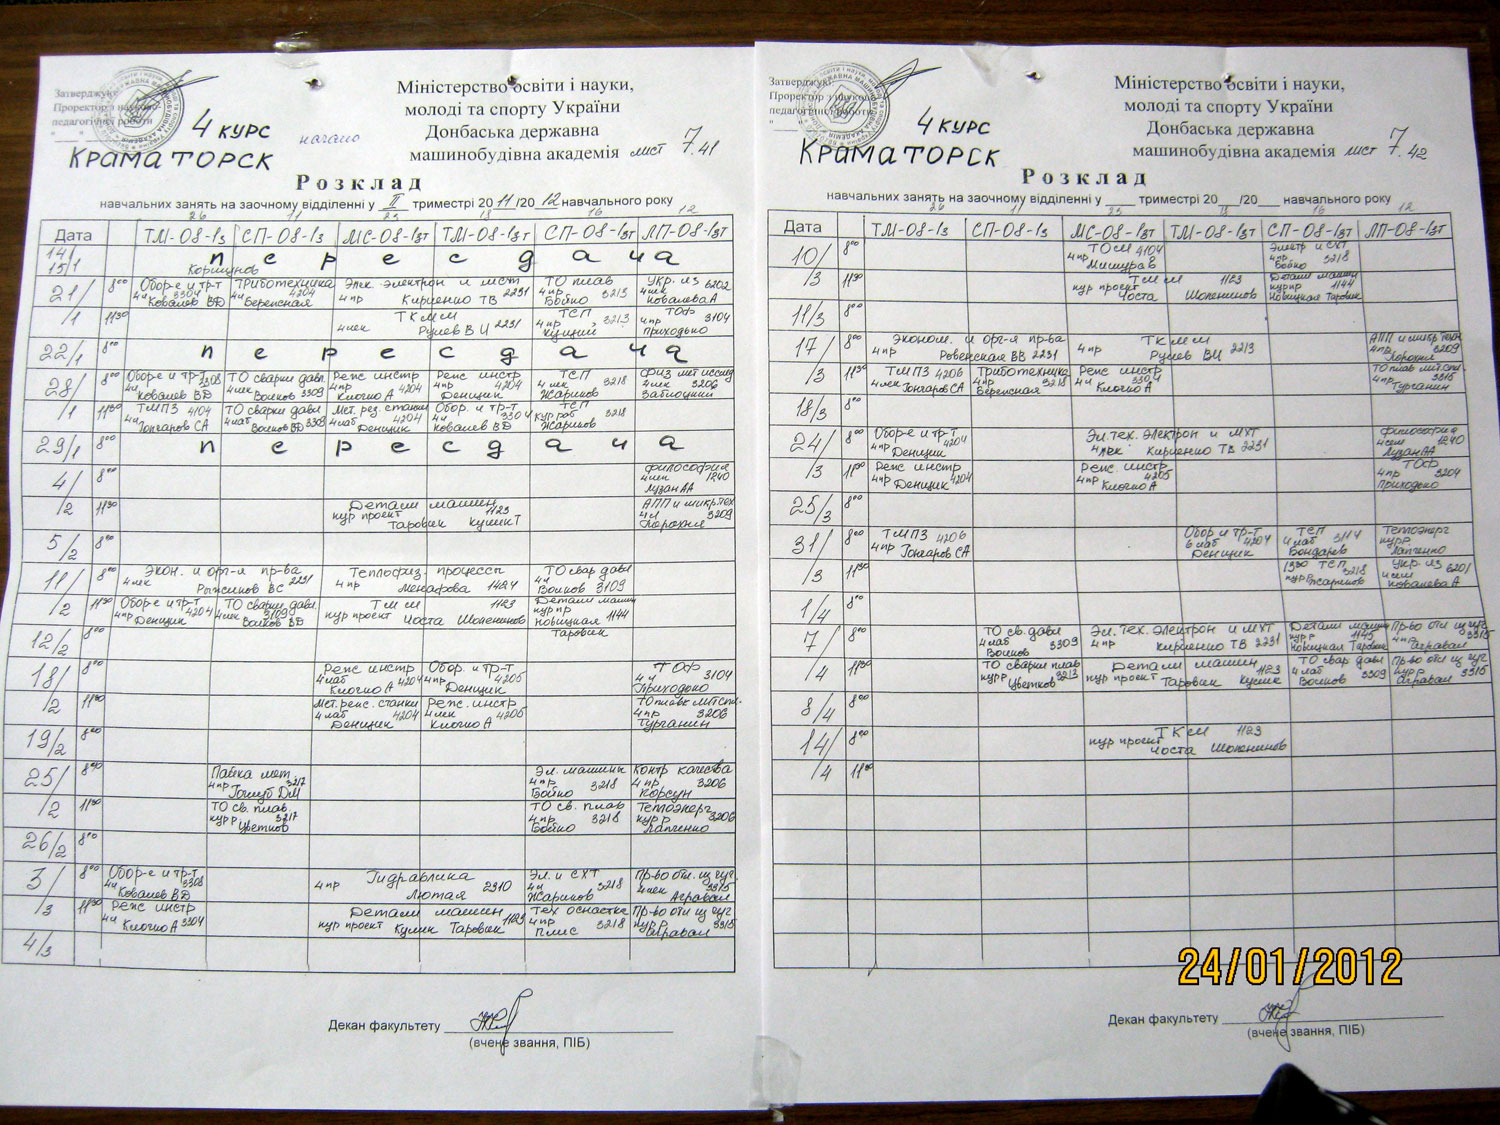 Затверджую:
Проректор з науково-
педагогічної роботи
4 курс
начало
Краматорск
Міністерство освіти і науки,
молоді та спорту України
Донбаська державна
машинобудівна академія лист 7.41
Розклад
навчальних занять на заочному відділенні у II триместрі 2011/2012 навчального року
26 11 23 18 16 12
Дата ТМ-08-1з СП-08-1з МС-08-1зт ТМ-08-1зт СП-08-1зт ЛП-08-1зт
14/1
15/1 пересдача
Коршунов
21/1 8⁰⁰ Обор-е и тр-т 4ч 3304 Ковалев ВД
Триботехника 4ч 4204 Веренская
Элек. электрон и мст 4пр Кириенко ТВ 2231
ТО плав 4пр Бойко 3213
Укр. яз 6202 4лек Ковалева А
11³⁰ ТКМ 4лек Рулев В И 2231
ТСП 4пр 3213
ТОФ 4пр 3104 Приходько
22/1 8⁰⁰ пересдача
28/1 8⁰⁰ Обор-е и тр-т 3308 4ч Ковалев ВД
ТО сварки давл 4лек Волков 3309
Реж инстр 4пр 4204 Клочко А
Реж инстр 4пр 4204 Денщик
ТСП 4лек 3218 Жариков
Физ мет исслед 4лек 3206 Заблоцкий
11³⁰ ТМПЗ 4104 4ч Гончаров СА
ТО сварки давл 4лаб Волков ВД 3309
Мет. рез. станки 4лаб 4204 Денщик
Обор. и тр-т 4ч 3304 Ковалев ВД
ТСП кур раб 3218 Жариков
29/1 8⁰⁰ пересдача
4/2 8⁰⁰ Философия 4лек 1240 Лузан АА
11³⁰ Детали машин кур проект 1123 Таровик
АПП и микр. тех 4ч 3209 Порохня
5/2 8⁰⁰
11/2 8⁰⁰ Экон. и орг-я пр-ва 4лек 2231
Теплофиз. процессы 4пр 1424
ТО свар давл 4ч Волков 3109
11³⁰ Обор-е и тр-т 4пр 4204 Денщик
ТО сварки давл. 4лек 3109 Волков ВД
ТММ кур проект 1123 Чоста Шоленинов
Детали машин кур пр Новицкая 1144 Таровик
12/2 8⁰⁰
18/2 8⁰⁰ Реж инстр 4лаб Клочко А 4204
Обор. и тр-т 4пр 4205 Денщик
ТОФ 4ч 3104 Приходько
11³⁰ Мет. реж. станки 4лаб 4204 Денщик
Реж. инстр 4лек 4205 Клочко А
4пр 3206 Турганин
19/2 8⁰⁰
25/2 8⁰⁰ Пайка мет. 4пр 3217 Голуб ДМ
Эл. машины 4пр 3218 Бойко
Контр качества 4пр 3206 Корсун
11³⁰ ТО св. плав. кур р 3217 Цветков
ТО св. плав 4пр 3218 Бойко
Теплоэнерг кур р 3206 Лапченко
26/2 8⁰⁰
3/3 8⁰⁰ Обор-е и тр-т 4ч 3308 Ковалев ВД
Гидравлика 4пр Лютая 2310
Эл. и СХТ 4ч 3218 Жариков
Пр-во отл. из чуг. 4лек 3315 Агравал
11³⁰ Реж инстр 4ч Клочко А 3304
Детали машин кур проект 1123 Кулик Таровик
Тех оснастка 4пр 3218 Плис
Пр-во отл из чуг кур р 3315 Агравал
4/3
Декан факультету
(вчене звання, ПІБ)
Затверджую:
Проректор з науково-
педагогічної роботи
4 курс
Краматорск
Міністерство освіти і науки,
молоді та спорту України
Донбаська державна
машинобудівна академія лист 7.42
Розклад
навчальних занять на заочному відділенні у ____ триместрі 20__/20__ навчального року
26 11 23 18 16 12
Дата ТМ-08-1з СП-08-1з МС-08-1зт ТМ-08-1зт СП-08-1зт ЛП-08-1зт
10/3 8⁰⁰ 4пр 4104 Мишура В
Электр и СХТ 4пр 3218 Бойко
11³⁰ ТММ кур проект 1123 Чоста Шоленинов
Детали машин кур пр 1144 Новицкая Таровик
11/3 8⁰⁰
17/3 8⁰⁰ Эконом. и орг-я пр-ва 4пр Роверская ВВ 2231
ТКМ 4пр Рулев ВИ 2213
АПП и микр техн 4пр 3209 Порохня
11³⁰ ТМПЗ 4206 4лек Гончаров СА
Триботехника 4пр 3218 Веренская
Реж инстр 4ч 3304 Клочко А
4пр 3315 Турганин
18/3 8⁰⁰
24/3 8⁰⁰ Обор-е и тр-т 4пр 4204 Денщик
Эл. тех. электрон и МХТ 4лек Кириенко ТВ 2231
Философия 4сем 1240 Лузан АА
11³⁰ Реж инстр 4пр Денщик 4204
Реж. инстр 4пр 4205 Клочко А
ТОФ 4пр 3204 Приходько
25/3 8⁰⁰
31/3 8⁰⁰ ТМПЗ 4206 4пр Гончаров СА
Обор и тр-т 6лаб 4204 Денщик
ТСП 4лаб 3114 Бондарев
Теплоэнерг кур р Лапченко
11³⁰ 13³⁰ ТСП кур р 3218 Жариков
Укр. яз 6201 4сем Ковалева А
1/4 8⁰⁰
7/4 8⁰⁰ ТО св. давл 4лаб 3309 Волков
Эл. тех. электрон и МХТ 4пр Кириенко ТВ 2231
Детали машин кур р 1145 Новицкая Таровик
Пр-во отл из чуг 3315 4пр Агравал
11³⁰ ТО сварки плав кур р 3213 Цветков
Детали машин кур проект 1123 Таровик Кулик
ТО свар давл 4лаб Волков 3309
Пр-во отл из чуг кур р 3315 Агравал
8/4 8⁰⁰
14/4 8⁰⁰ ТКМ 1123 кур проект Чоста Шоленинов
11³⁰
Декан факультету
(вчене звання, ПІБ)
24/01/2012